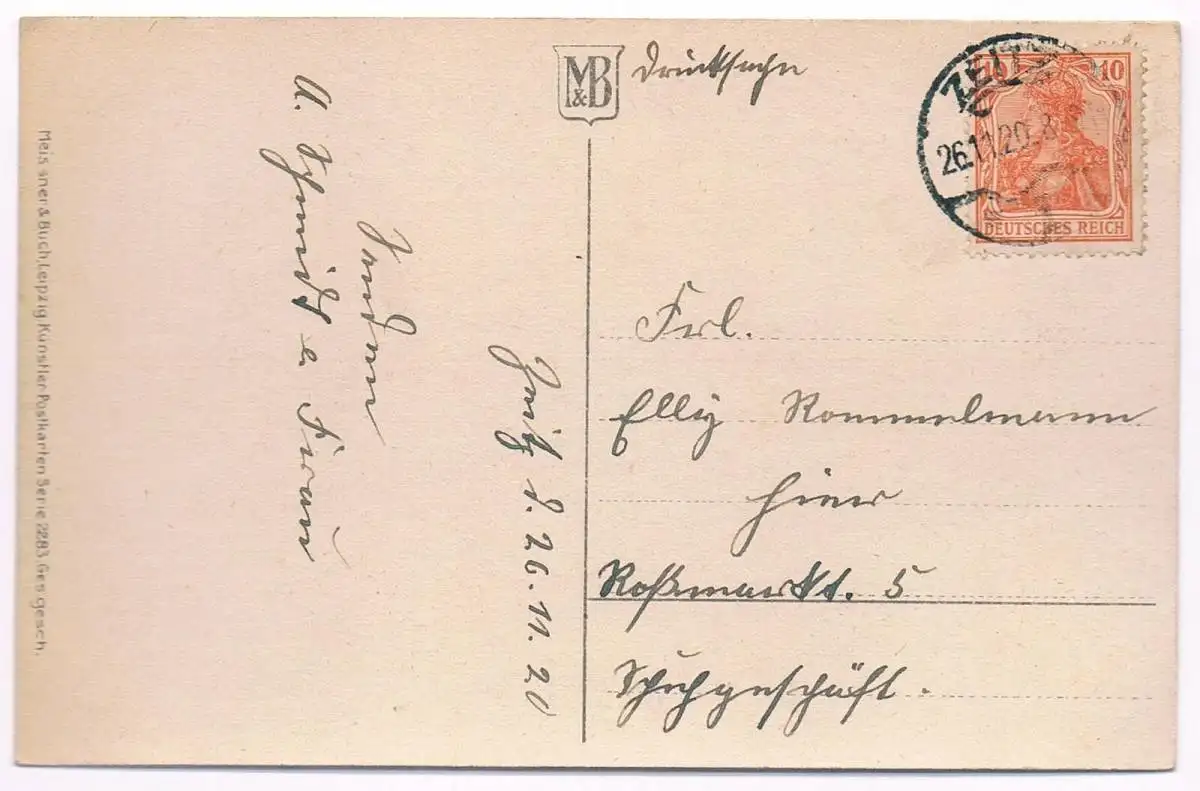 M&B
Drucksache
ZEITZ
26.11.20. 8
10 10
DEUTSCHES REICH
Frl.
Elly Rommelmann
hier
Roßmarkt. 5
Schuhgeschäft.
Zeitz d. 26. 11. 20
senden
A. Schmidt u. Frau
Meissner & Buch, Leipzig Künstler-Postkarten Serie 2283 Ges. gesch.